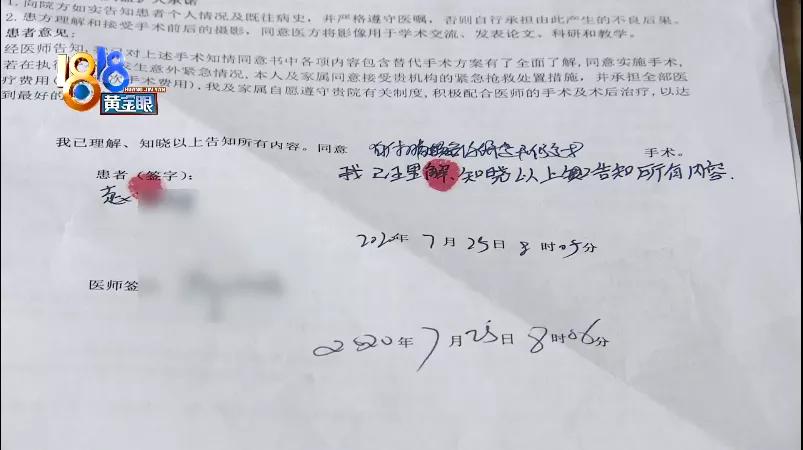 1. 向院方如实告知患者个人情况及既往病史，并严格遵守医嘱，否则自行承担由此产生的不良后果。
2. 患方理解和接受手术前后的摄影，同意医方将影像用于学术交流、发表论文、科研和教学。
患者意见：
经医师告知，我已对上述手术知情同意书中各项内容包含替代手术方案有了全面了解，同意实施手术，
若在执行 发生意外紧急情况，本人及家属同意接受贵机构的紧急抢救处置措施，并承担全部医
疗费用（ 次手术费用），我及家属自愿遵守贵院有关制度，积极配合医师的手术及术后治疗，以达
到最好的
1818
黄金眼
我已理解、知晓以上告知所有内容。同意 手术。
患者（签字）：
我已理解、知晓以上 告知所有内容.
2020年 7月25日 8时05分
医师签
2020年 7月25日 8时06分